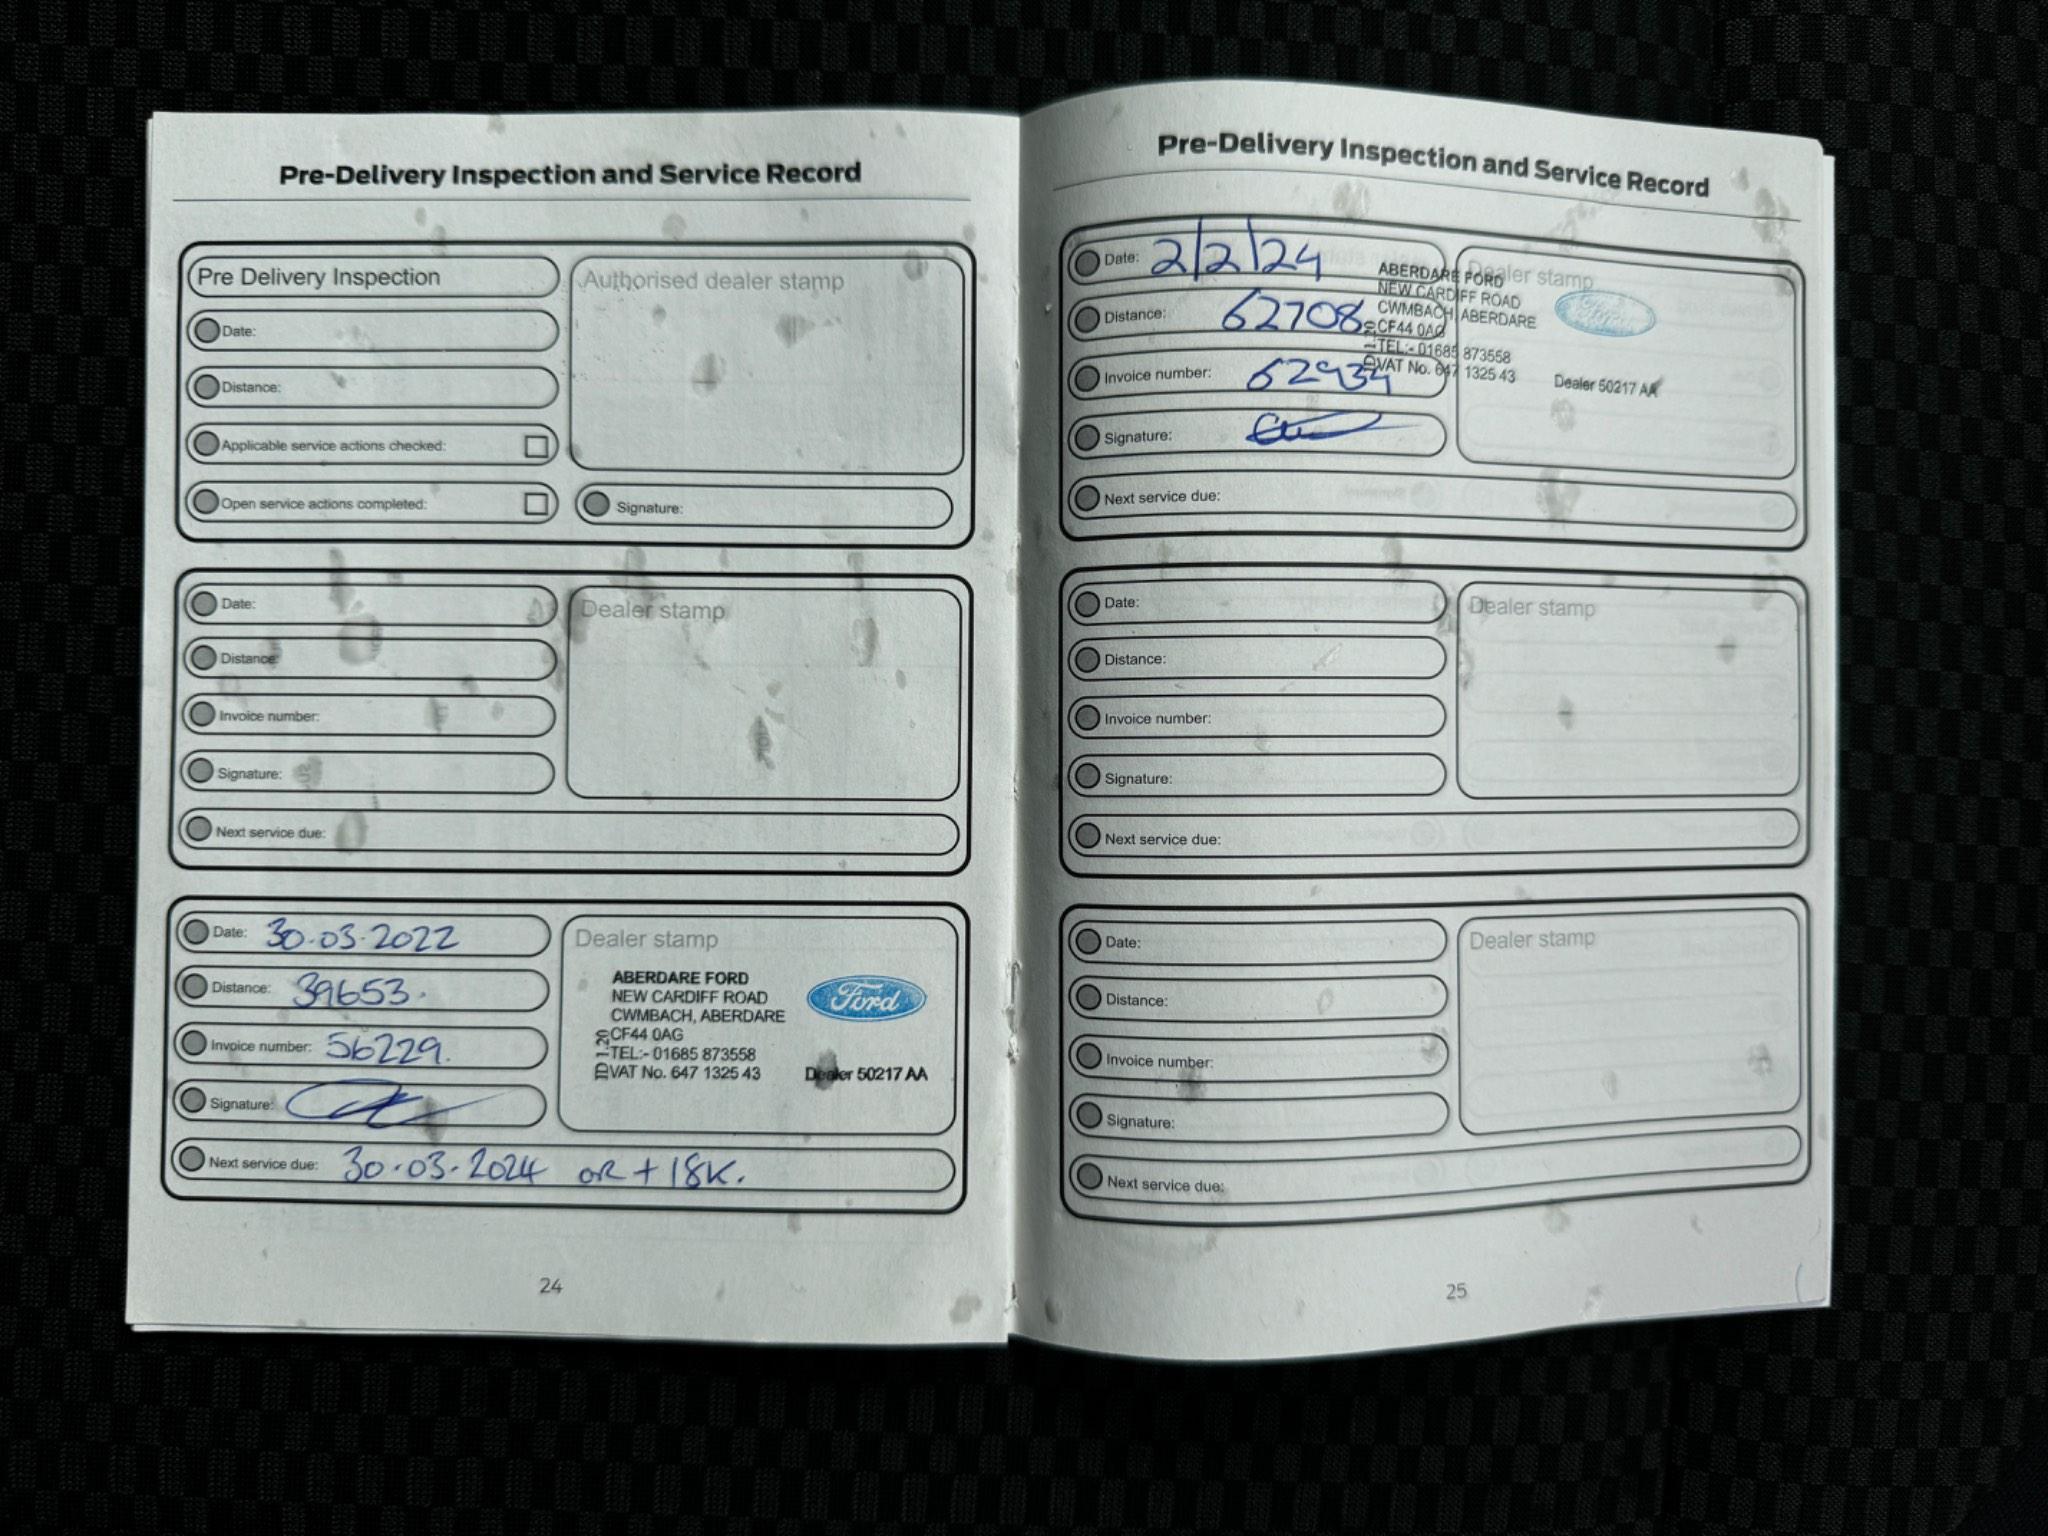 Pre-Delivery Inspection and Service Record
Pre Delivery Inspection
Authorised dealer stamp
Date:
Distance:
Applicable service actions checked:
Open service actions completed:
Signature:
Date:
Dealer stamp
Distance:
Invoice number:
Signature:
Next service due:
Date: 30.03.2022
Distance: 39653.
Invoice number: 56229.
Signature:
Next service due: 30.03.2024 OR + 18K.
Dealer stamp
ABERDARE FORD
NEW CARDIFF ROAD
CWMBACH, ABERDARE
CF44 0AG
TEL:- 01685 873558
VAT No. 647 1325 43
ID 1.20
Ford
Dealer 50217 AA
24
Pre-Delivery Inspection and Service Record
Date: 2/2/24
Distance: 62708
Invoice number: 62934
Signature:
Next service due:
Dealer stamp
ABERDARE FORD
NEW CARDIFF ROAD
CWMBACH, ABERDARE
CF44 0AG
TEL:- 01685 873558
VAT No. 647 1325 43
Ford
Dealer 50217 AA
Date:
Dealer stamp
Distance:
Invoice number:
Signature:
Next service due:
Date:
Dealer stamp
Distance:
Invoice number:
Signature:
Next service due:
25